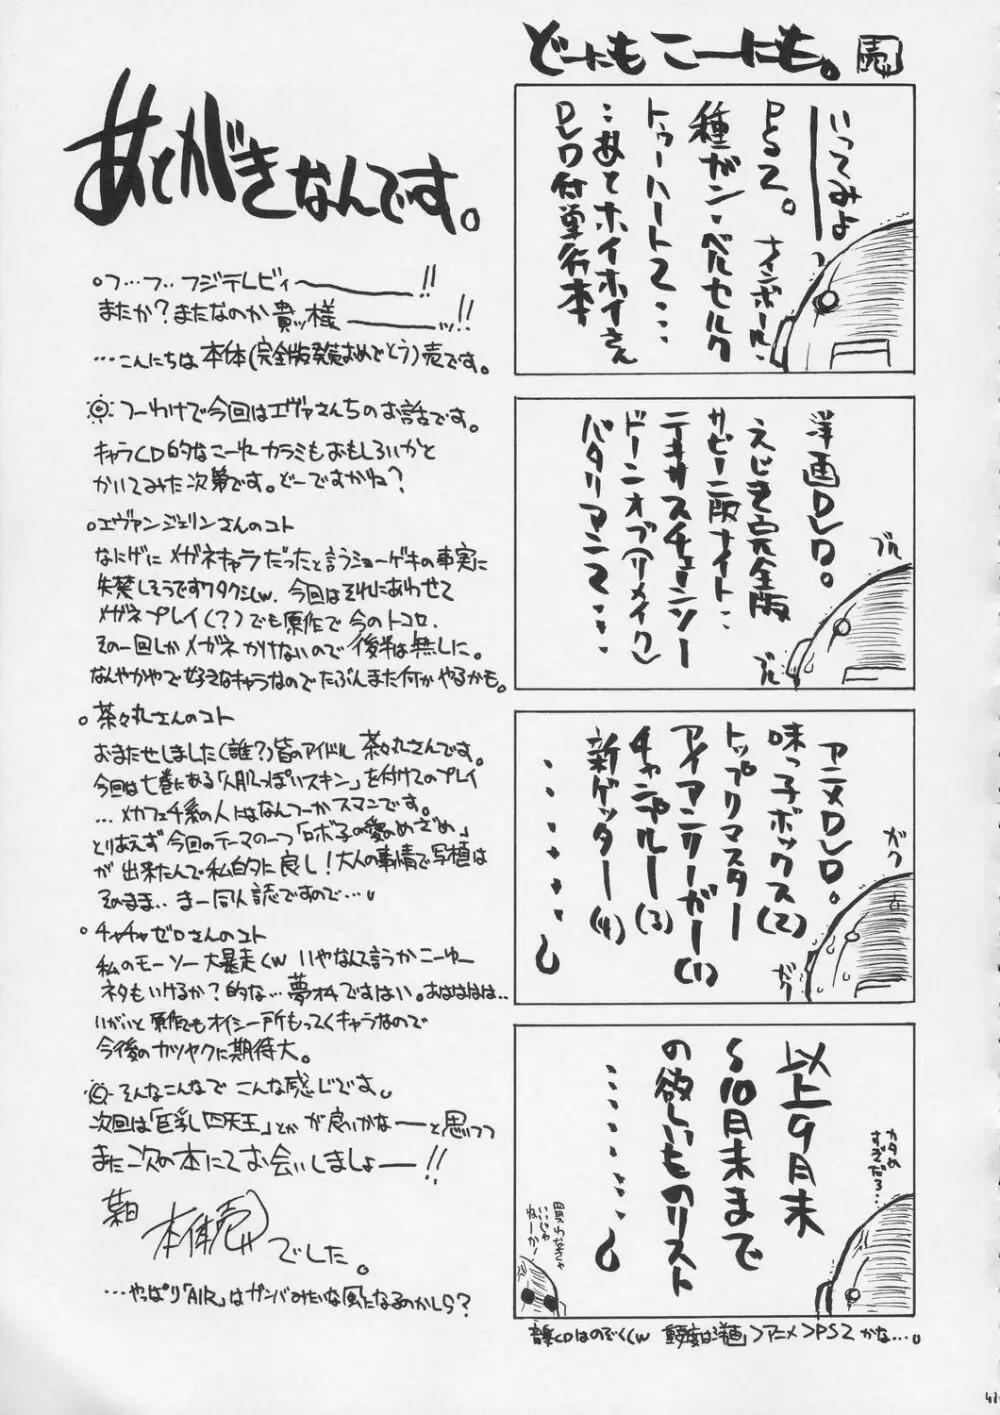 どーにも こーにも。 売
いってみよー
PS2。 ナインボール・
種ガン・ベルセルク
トゥーハート2・・・
・・あとホイホイさん
DVD付単行本
洋画DVD。
えじき完全版
サビーニ版ナイト・・
テキサスチェーンソー
ドーンオブ(リメイク)
バタリアン2・・・
ブル
ブル
アニメDVD。
味っ子ボックス(2)
トップリマスター
アイアンリーガー(1)
チャンプルー(3)
新ゲッター(4)
・・・・・・。
ガク
ガク
以上9月末
〜10月末まで
の欲しいものリスト
・・・・・・。
カタめ
すぎだろ・・・
買わなきゃ
いいじゃ
ねーかー
音楽CDはのぞくw 重要度は洋画>アニメ>PS2かな・・・。
あとがきなんです。
○フ…フ‥フジテレビィ〜――!!
またか?またなのか貴ッ様――ッ!!
…こんにちは本体(完全版発売おめでとう)売です。
つーわけで今回はエヴァさんちのお話です。
キャラCD的なこーゆーカラミもおもしろいかと
かいてみた次第です。どーですかね?
○エヴァンジェリンさんのコト
なにげにメガネキャラだったと言うショーゲキの事実に
失禁しそうですワタクシw。今回はそれにあわせて
メガネプレイ(?)でも原作で今のトコロ、
その一回しかメガネかけないので後半は無しに。
なんやかやで好きなキャラなのでたぶんまた何かやるかも。
○茶々丸さんのコト
おまたせしました(誰?)皆のアイドル茶々丸さんです。
今回は七巻にある「人肌っぽいスキン」を付けてのプレイ
…メカフェチ系の人にはなんつーかスマンです。
とりあえず今回のテーマの一つ「ロボ子の愛のめざめ」
が出来たんで私的に良し!大人の事情で写植は
そのまま‥まー同人誌ですので…。
○チャチャゼロさんのコト
私のモーソー大暴走くw いやなんて言うかこーゆー
ネタもいけるか?的な…夢オチですはい。あはははは‥
いがいと原作でもオイシー所もってくキャラなので
今後のカツヤクに期待大。
そんなこんなでこんな感じです。
次回は「巨乳四天王」とかが良いかなーーと思いつつ
また次の本にてお会いしましょーー!!
本体売 でした。
…やっぱり「AIR」はガンバみたいな風になるのかしら?
41